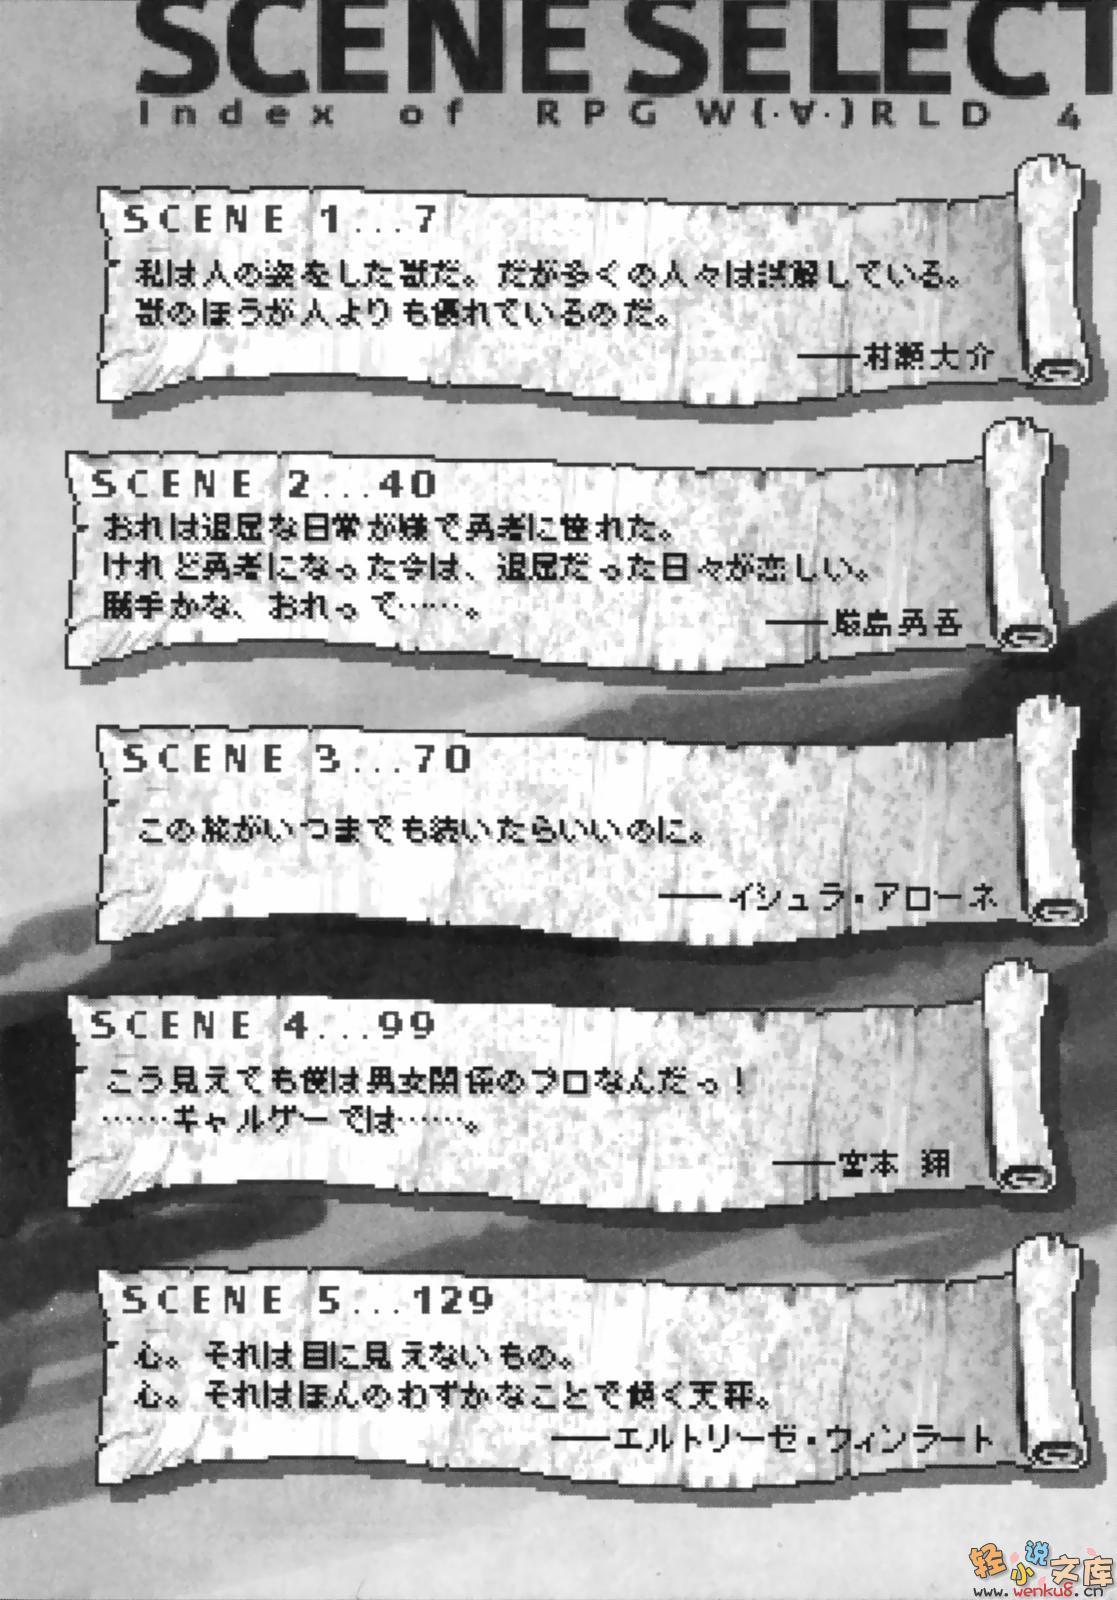 SCENE SELECT
Index of RPG W(・∀・)RLD 4
SCENE 1...7
私は人の姿をした獣だ。だが多くの人々は誤解している。
獣のほうが人よりも優れているのだ。
——村瀬大介
SCENE 2...40
おれは退屈な日常が嫌で勇者に憧れた。
けれど勇者になった今は、退屈だった日々が恋しい。
勝手かな、おれって……。
——厳島勇吾
SCENE 3...70
この旅がいつまでも続いたらいいのに。
——イシュラ・アローネ
SCENE 4...99
こう見えても僕は男女関係のプロなんだっ！
……ギャルゲーでは……。
——宮本 翔
SCENE 5...129
心。それは目に見えないもの。
心。それはほんのわずかなことで傾く天秤。
——エルトリーゼ・ウィンラート
轻小说文库
www.wenku8.cn